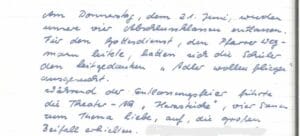 Am Donnerstag, dem 21. Juni, wurden
unsere vier Abschlussklassen entlassen.
Für den Gottesdienst, den Pfarrer Weg-
mann leitete, hatten sich die Schüler
den Leitgedanken "Adler wollen fliegen"
ausgesucht.
Während der Entlassungsfeier führte
die Theater-AG "Herzstücke", vier
zum Thema Liebe, auf, die großen
Beifall erhielten.